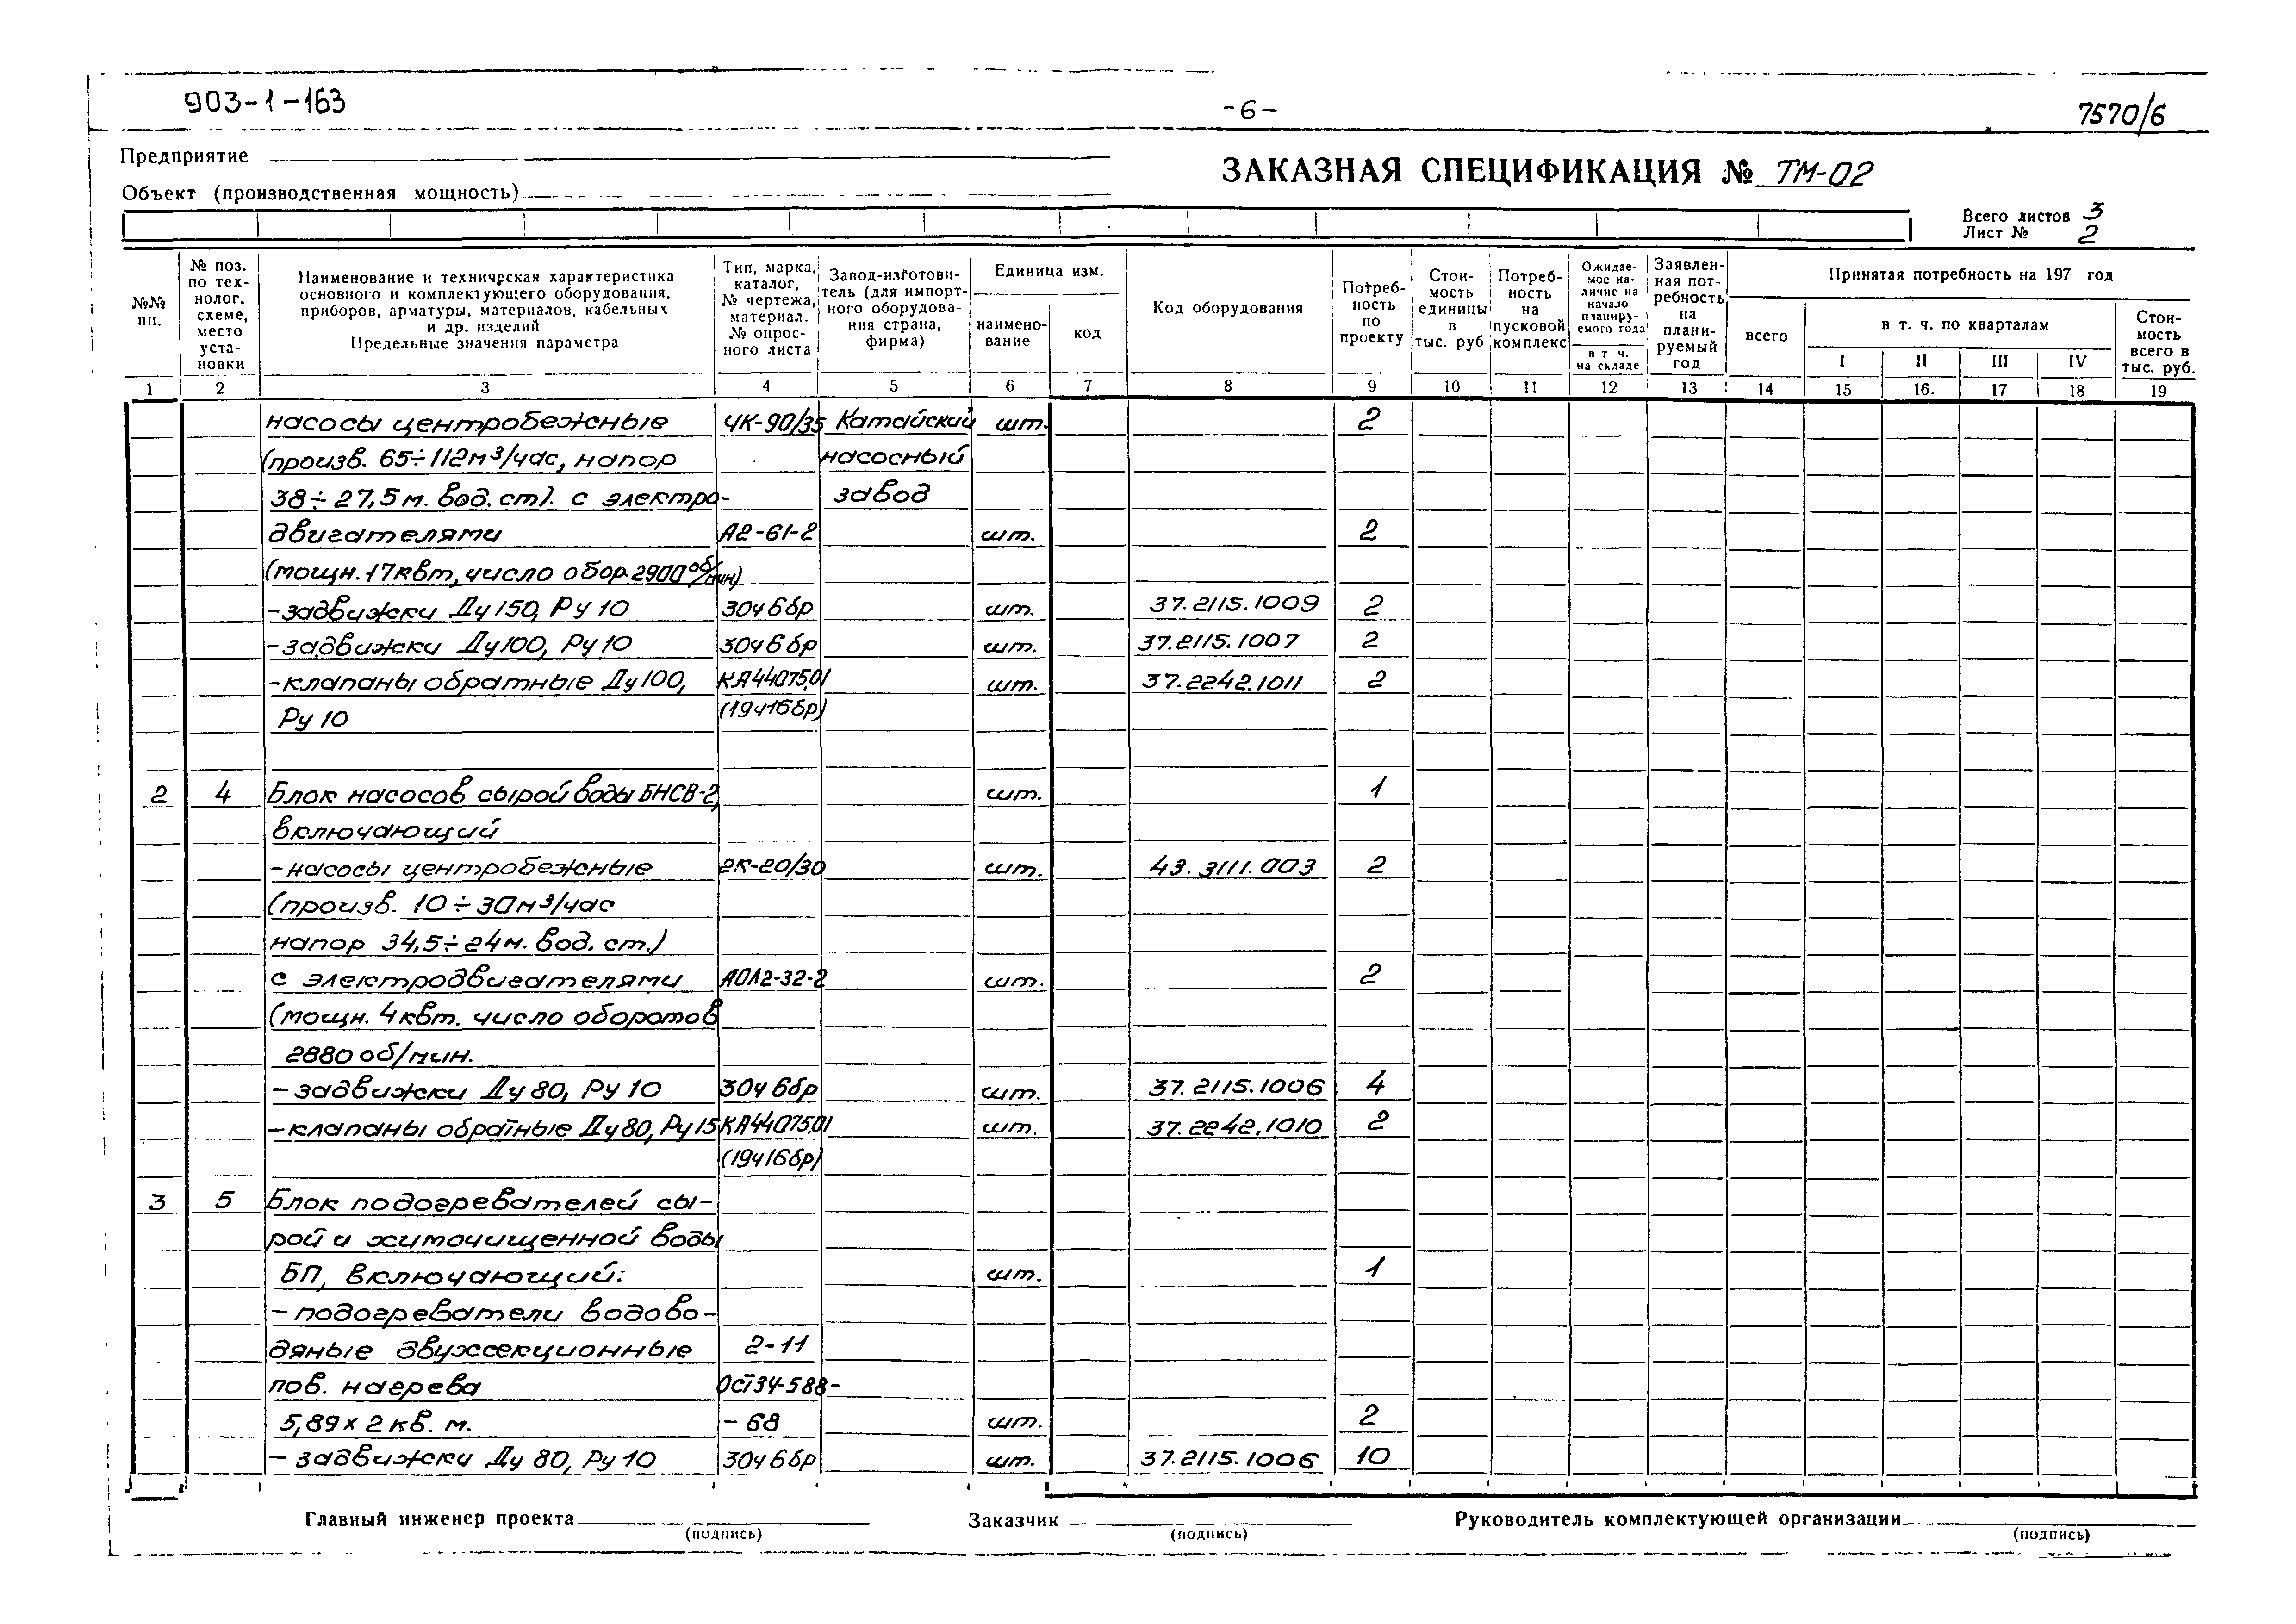 903-1-163
-6-
7570/6
Предприятие
Объект (производственная мощность)
ЗАКАЗНАЯ СПЕЦИФИКАЦИЯ № ТМ-02
Всего листов 3
Лист № 2
№№ пп.
№ поз. по технолог. схеме, место установки
Наименование и техническая характеристика
основного и комплектующего оборудования,
приборов, арматуры, материалов, кабельных
и др. изделий
Предельные значения параметра
Тип, марка, каталог, № чертежа, материал. № опросного листа
Завод-изготовитель (для импортного оборудования страна, фирма)
Единица изм.
наименование
код
Код оборудования
Потребность по проекту
Стоимость единицы в тыс. руб
Потребность на пусковой комплекс
Ожидаемое наличие на начало планируемого года
в т ч. на складе
Заявленная потребность на планируемый год
Принятая потребность на 197 год
всего
в т. ч. по кварталам
I II III IV
Стоимость всего в тыс. руб.
1 2 3 4 5 6 7 8 9 10 11 12 13 14 15 16. 17 18 19
насосы центробежные 4К-90/35 Катайский шт. 2
(произв. 65÷112м³/час, напор насосный
38÷27,5м. вод. ст). с электро- завод
двигателями А2-61-2 шт. 2
(мощн. 17квт, число обор. 2900 об/мин)
-задвижки Ду 150, Ру 10 30ч6бр шт. 37.2115.1009 2
-задвижки Ду100, Ру 10 30ч6бр шт. 37.2115.1007 2
-клапаны обратные Ду 100, КА44075.01 шт. 37.2242.1011 2
Ру 10 (19ч16бр)
2 4 Блок насосов сырой воды БНСВ-2, шт. 1
включающий
-насосы центробежные 2К-20/30 шт. 43.3111.003 2
(произв. 10÷30м³/час
напор 34,5÷24м. вод. ст.)
с электродвигателями АОЛ2-32-2 шт. 2
(мощн. 4квт. число оборотов
2880 об/мин.
- задвижки Ду 80, Ру 10 30ч6бр шт. 37.2115.1006 4
-клапаны обратные Ду 80, Ру 15 КА44075.01 шт. 37.2242.1010 2
(19ч16бр)
3 5 Блок подогревателей сы-
рой и химочищенной воды
БП, включающий: шт. 1
- подогреватели водово-
дяные двухсекционные 2-11
пов. нагрева ОСТ34-588-
5,89 х 2 кв. м. - 68 шт. 2
- задвижки Ду 80, Ру 10 30ч6бр шт. 37.2115.1006 10
Главный инженер проекта
(подпись)
Заказчик
(подпись)
Руководитель комплектующей организации
(подпись)